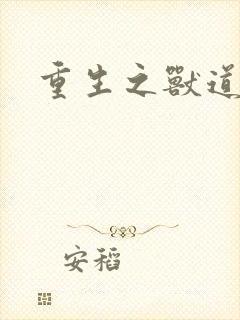 重生之獸道
安稻